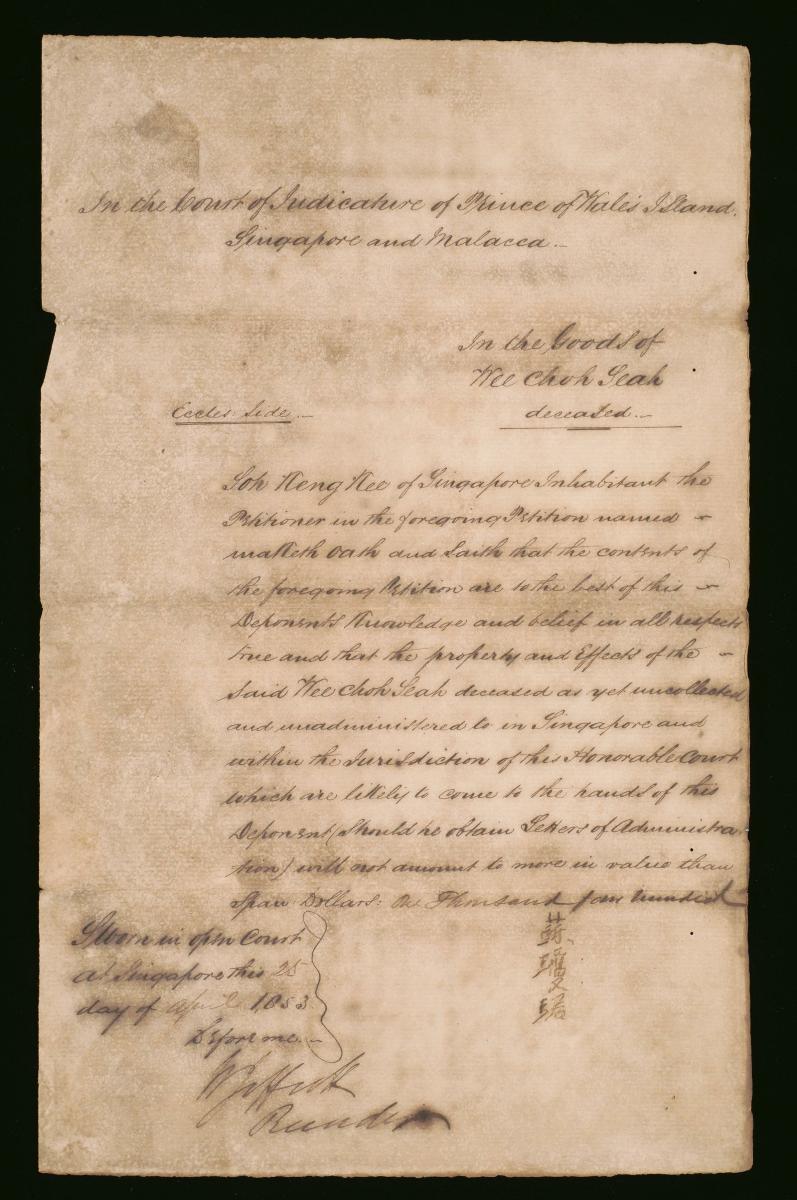 In the Court of Judicature of Prince of Wales Island.
Singapore and Malacca.
In the Goods of
Wee Choh Seah
deceased.
Eccles: Side.
Soh Keng Kee of Singapore Inhabitant the
Petitioner in the foregoing Petition named
maketh Oath and Saith that the contents of
the foregoing Petition are to the best of this
Deponents Knowledge and belief in all respects
true and that the property and Effects of the
Said Wee Choh Seah deceased as yet uncollected
and unadministered to in Singapore and
within the Jurisdiction of this Honorable Court
which are likely to come to the hands of this
Deponent (Should he obtain Letters of Administra-
tion) will not amount to more in value than
Span: Dollars: One Thousand four hundred
Sworn in open Court
at Singapore this 25
day of April 1853
Before me.